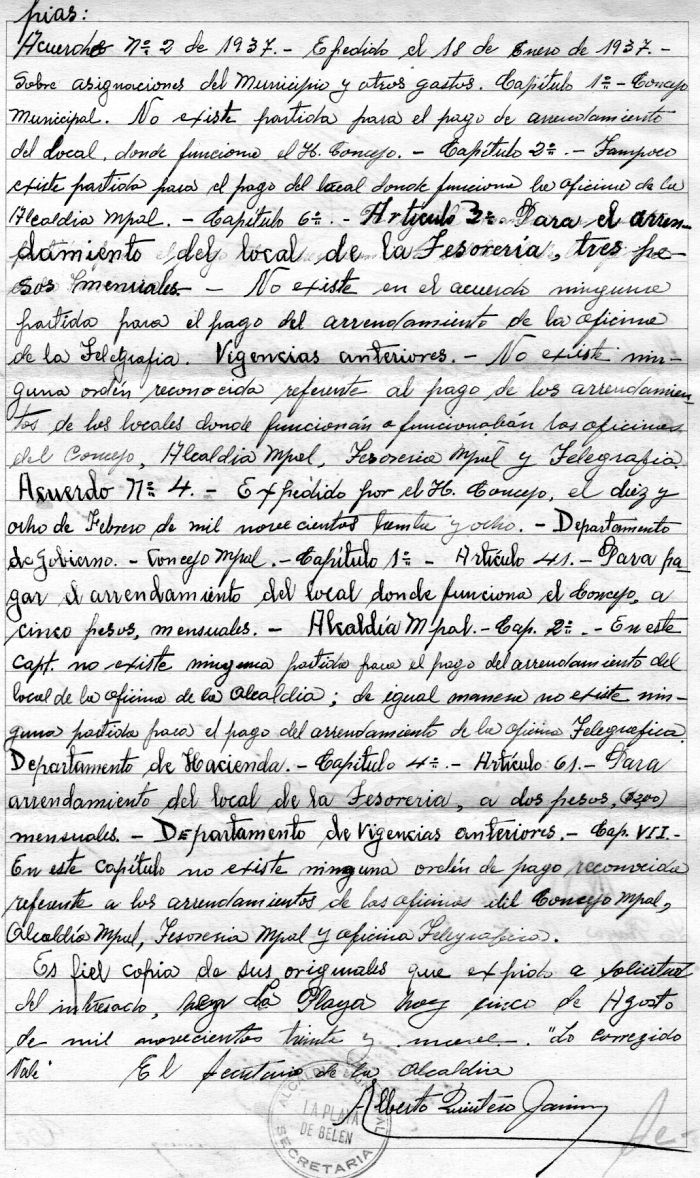 pias:
Acuerdo Nº 2 de 1937.- Expedido el 18 de Enero de 1937.-
Sobre asignaciones del Municipio y otros gastos. Capítulo 1º - Concejo
Municipal. No existe partida para el pago de arrendamiento
del local, donde funciona el H. Concejo. - Capítulo 2º. - Tampoco
existe partida para el pago del local donde funciona la oficina de la
Alcaldia Mpal. - Capítulo 6º. - Artículo 3º Para el arren-
damiento del local de la Tesorería, tres pe-
sos mensuales. - No existe en el acuerdo ninguna
partida para el pago del arrendamiento de la oficina
de la Telegrafia. Vigencias anteriores. - No existe nin-
guna orden reconocida referente al pago de los arrendamien-
tos de los locales donde funcionán o funcionabán las oficinas
del Concejo, Alcaldia Mpal, Tesoreria Mpal y Telegrafia.
Acuerdo Nº 4. - Expedido por el H. Concejo, el diez y
ocho de Febrero de mil novecientos treinta y ocho. - Departamento
de Gobierno. - Concejo Mpal. - Capítulo 1º - Artículo 41. - Para pa-
gar el arrendamiento del local donde funciona el Concejo, a
cinco pesos, mensuales. - Alcaldía Mpal. - Cap. 2º. - En este
capt. no existe ninguna partida para el pago del arrendamiento del
local de la oficina de la Alcaldia; de igual manera no existe nin-
guna partida para el pago del arrendamiento de la oficina Telegrafica.
Departamento de Hacienda. - Capítulo 4º - Artículo 61. - Para
arrendamiento del local de la Tesoreria, a dos pesos, ($2,00)
mensuales. - Departamento de Vigencias anteriores. - Cap. VII. -
En este capítulo no existe ninguna ordén de pago reconocida
referente a los arrendamientos de las oficinas del Concejo Mpal,
Alcaldía Mpal, Tesoreria Mpal y oficina Telegrafica.
Es fiel copia de sus originales que expido a solicitud
del interesado, La Playa hoy cinco de Agosto
de mil novecientos treinta y nueve. - "Lo corregido
Vale"
El Secretario de la Alcaldia
Alberto Quintero
ALCALDIA MUNICIPAL
LA PLAYA
DE BELEN
SECRETARIA